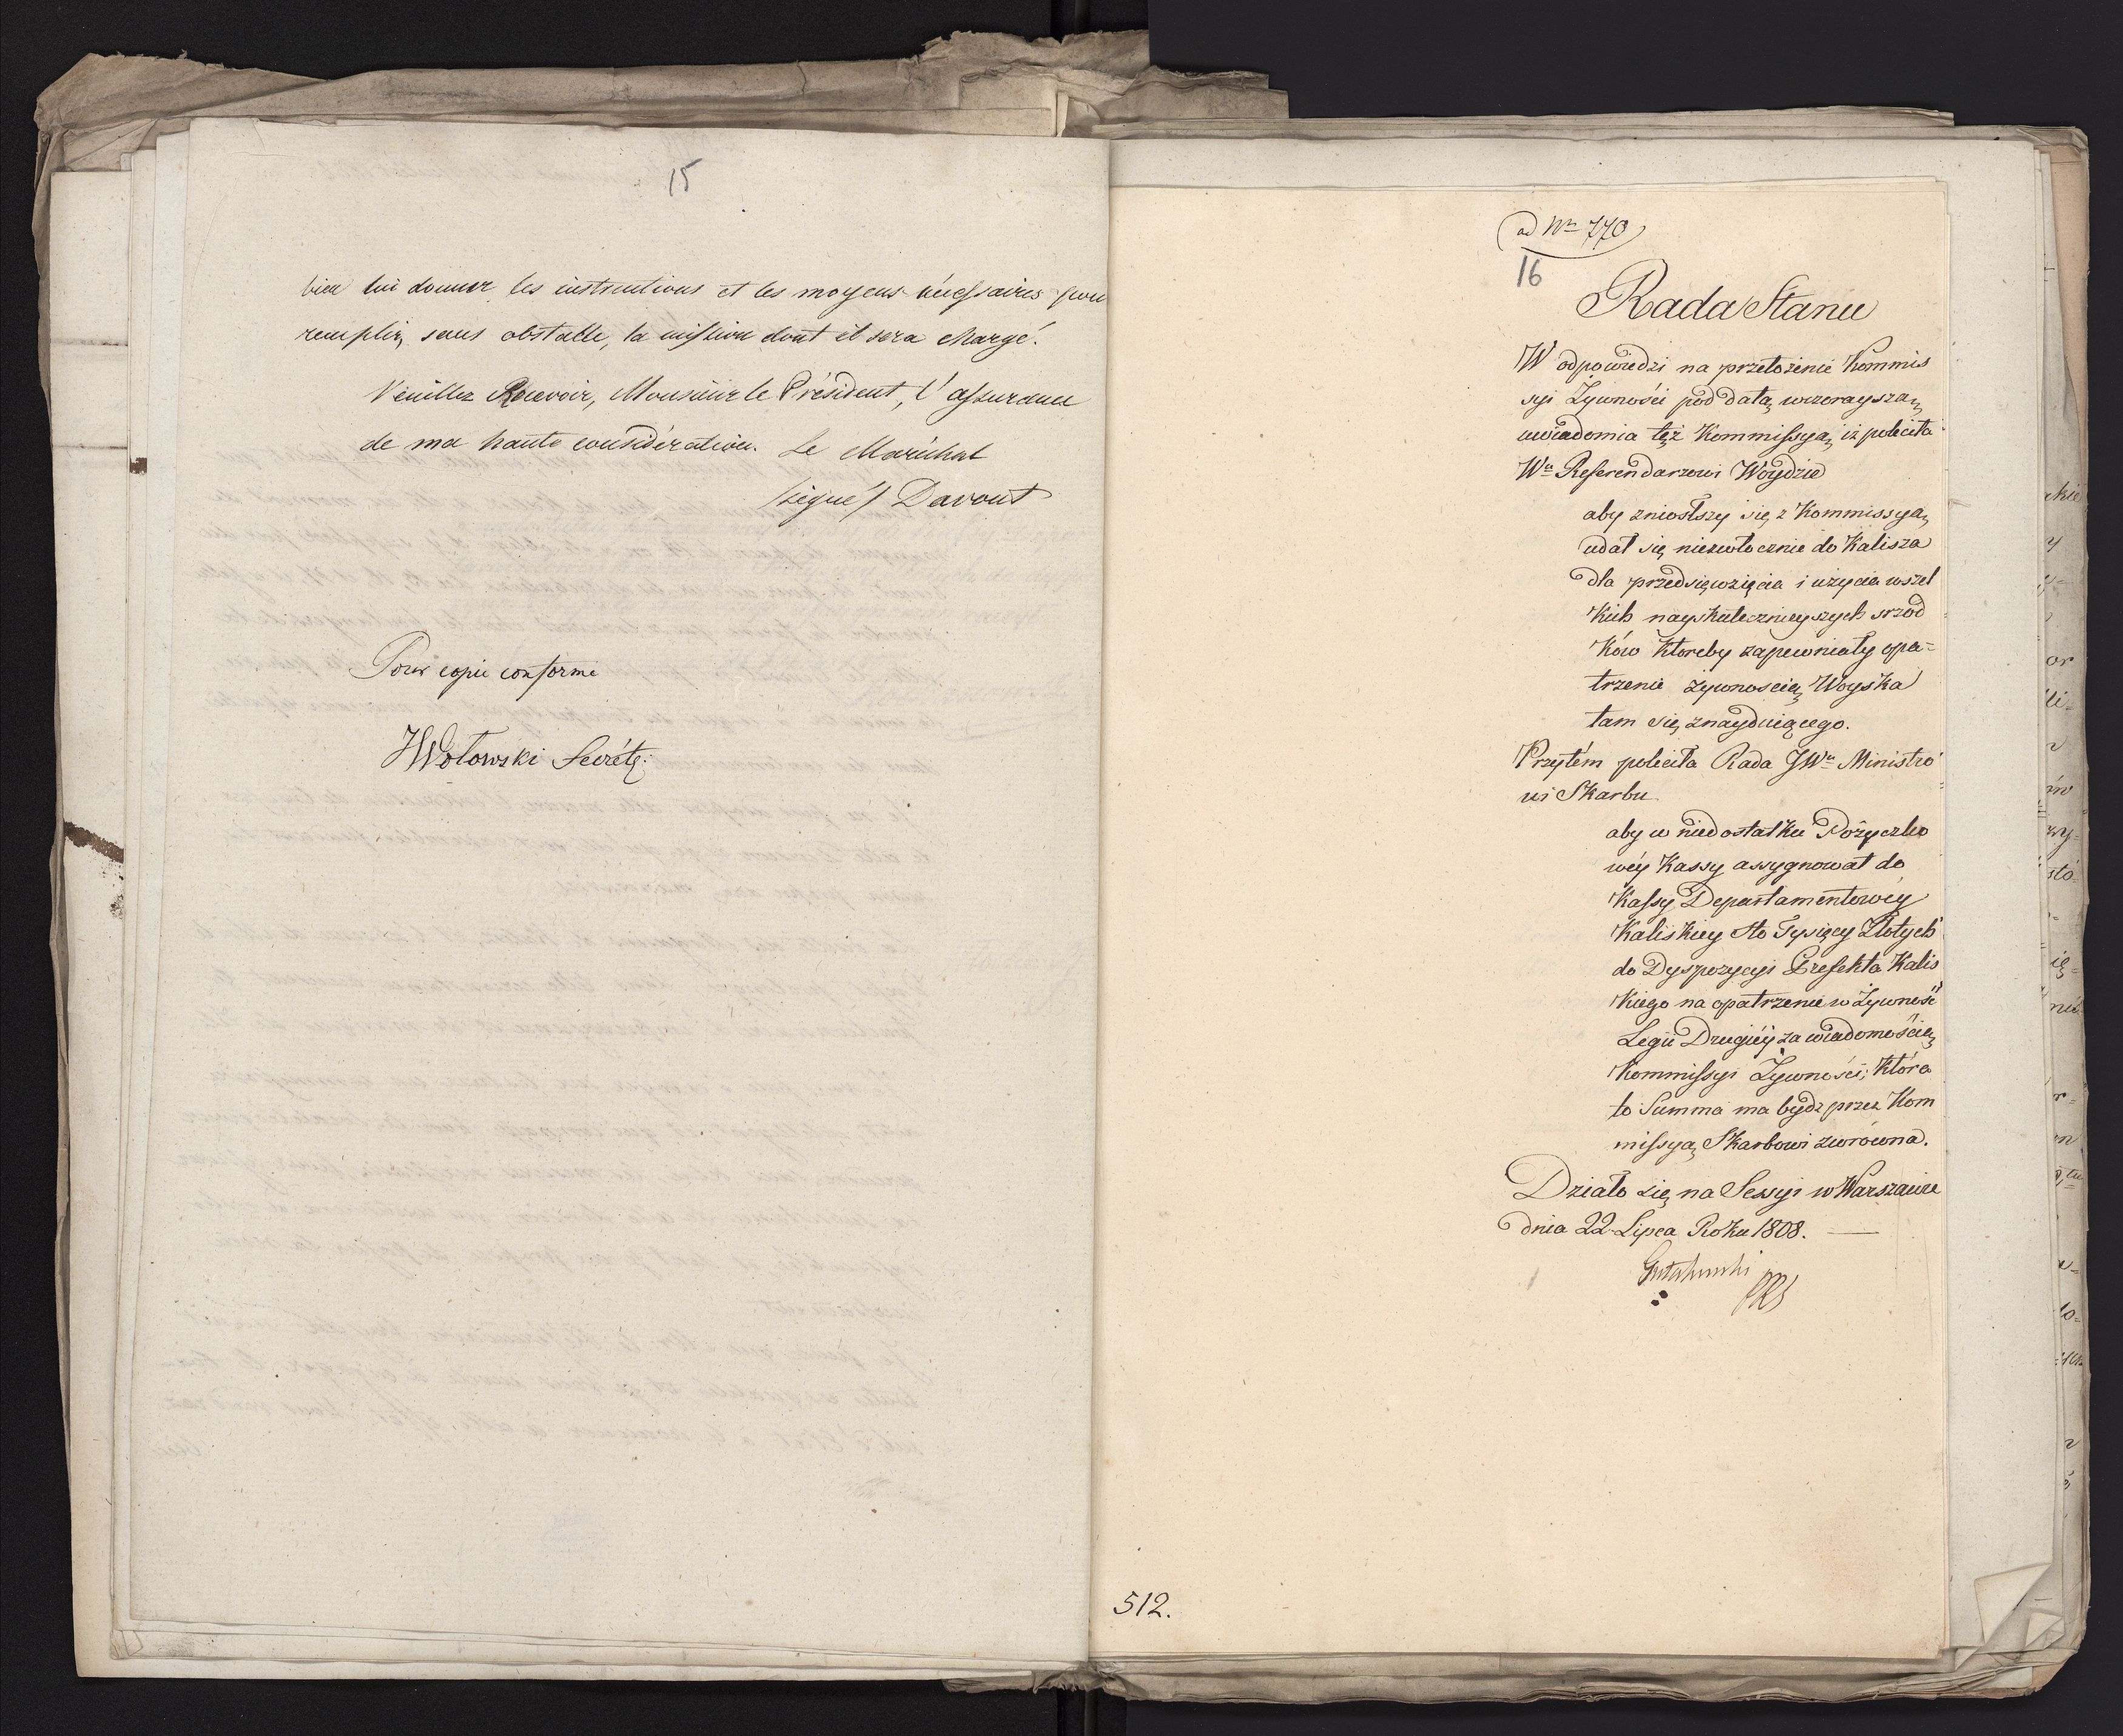 15
bien lui donner les instructions et les moyens nécessaires pour
remplir, sans obstacle, la mission dont il sera chargé.
Veuillez Recevoir, Monsieur le Président, l'assurance
de ma haute considération. Le Maréchal
/signé/ Davout
Pour copie conforme
JWołowski Secrét:
ad Nro 770
16
Rada Stanu
W odpowiedzi na przełożenie Kommis
syi Żywności pod datą wczorayszą,
uwiadomia też Kommissyą, iż poleciła
Wu Referendarzowi Woydzie
aby zniosłszy się z Kommissyą,
udał się niezwłocznie do Kalisza
dla przedsięwzięcia i użycia wszel
kich nayskutecznieyszych srzod
ków któreby zapewniały opa=
trzenie żywnoscią Woyska
tam się znayduiącego.
Przytém poleciła Rada JWu Ministro
wi Skarbu
aby w niedostatku Pożyczko
wéy Kassy assygnował do
Kassy Departamentowéy
Kaliskiey Sto Tysięcy Złotych
do Dyspozycyi Prefekta Kalis
kiego na opatrzenie w Żywność
Legii Drugiéy za wiadomością
Kommissyi Żywności, która
to Summa ma bydz przez Kom
missyą Skarbowi zwrówna.
Działo się na Sessyi w Warszawie
dnia 22 Lipca Roku 1808.
Gutakowski
512.